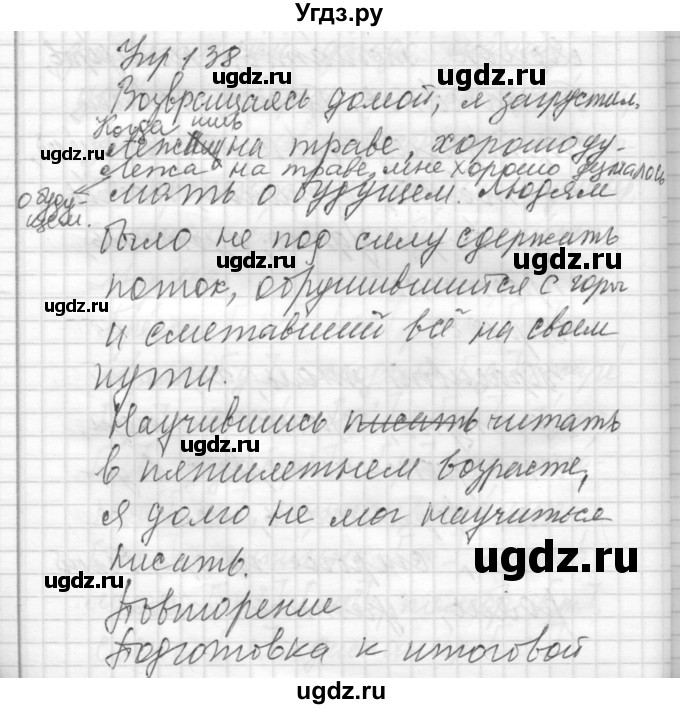 Угдз.ру
Упр 138
Возвращаясь домой, я загрустил.
Когда
Лежа на траве, хорошо ду-
Лежа на траве, мне хорошо думалось
о буду-
щем.
мать о будущем. Людям
было не под силу сдержать
поток, обрушившийся с горы
и сметавший всё на своем
пути.
Научившись писать читать
в пятилетнем возрасте,
я долго не мог научиться
писать.
Повторение
Подготовка к итоговой
ugdz.ru
ugdz.ru
ugdz.ru
ugdz.ru
ugdz.ru
ugdz.ru
ugdz.ru
ugdz.ru
ugdz.ru
ugdz.ru
ugdz.ru
ugdz.ru